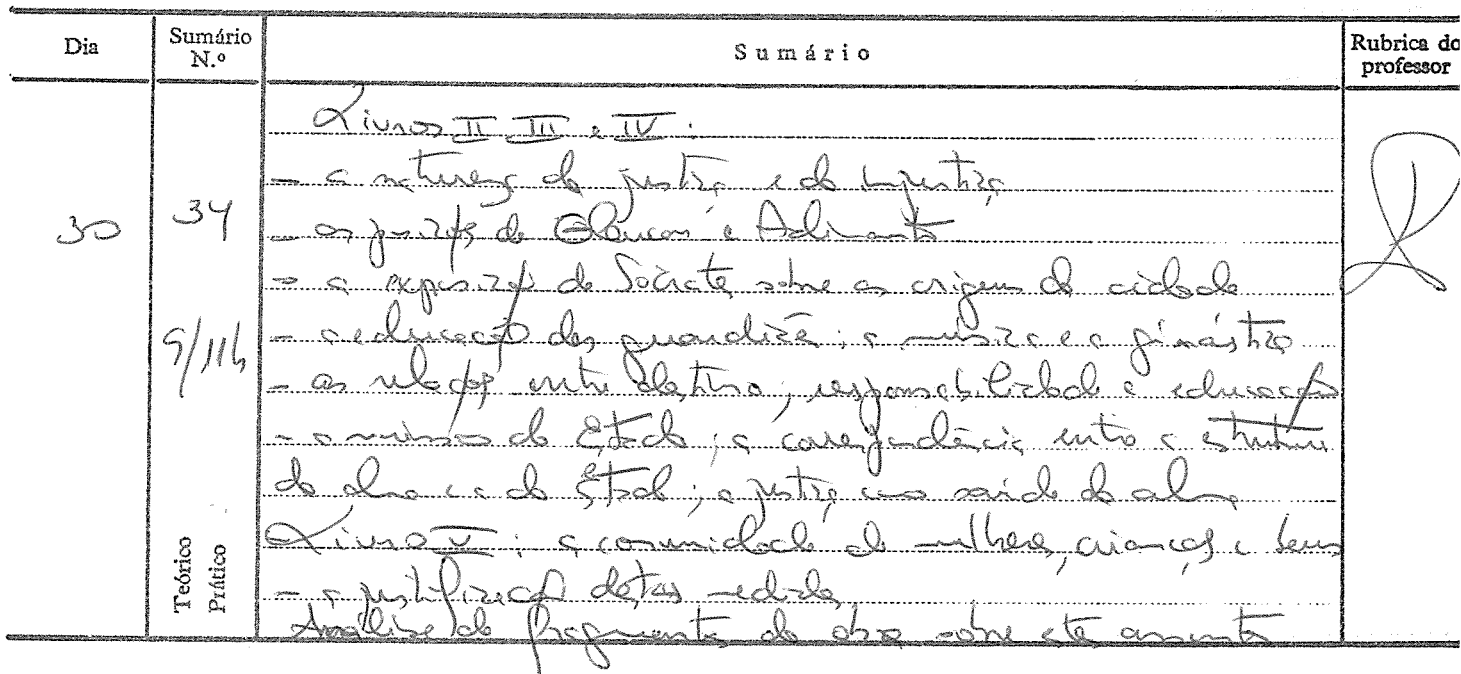 Dia Sumário N.º Sumário Rubrica do professor
Livros II III e IV:
- a natureza da justiça e da injustiça
30 34 - as posições de Gláucon e Adimanto
- a exposição de Sócrates sobre as origens da cidade
9/11h - a educação dos guardiães; a música e a ginástica
- as relações entre destino, responsabilidade e educação
- a missão do Estado; a correspondência entre a estrutura
da alma e a do Estado; a justiça como saúde da alma
Teórico Prático Livro V: a comunidade de mulheres, crianças e bens
- a justificação destas medidas
Análise de fragmentos da obra sobre este assunto